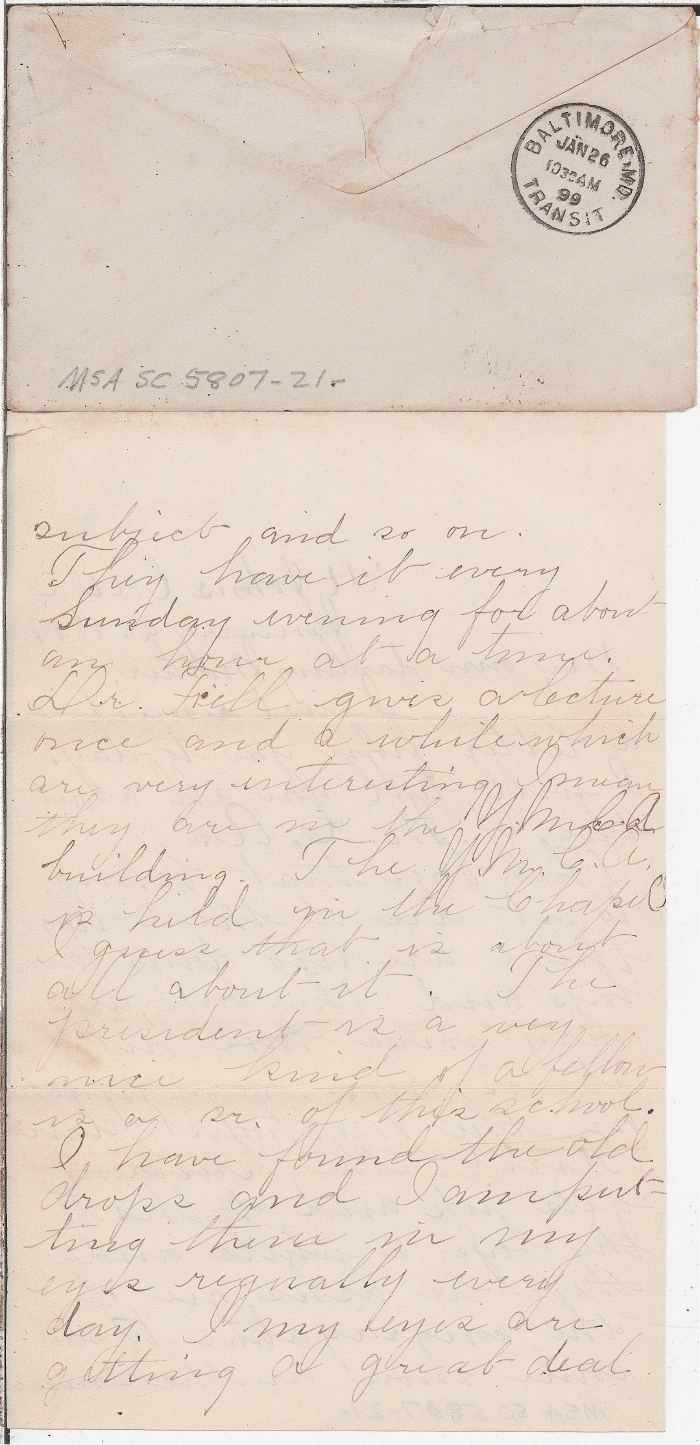 BALTIMORE, MD.
JAN 26
1030AM
99
TRANSIT
MSA SC 5807-21-
subject and so on.
They have it every
Sunday evening for about
an hour at a time.
Dr. Fell gives a lecture
once and a while which
are very interesting I mean
they are in the Y.M.C.A
building. The Y.M.C.A.
is held in the Chapel
I guess that is about
all about it. The
president is a very
nice kind of a fellow
is a sr. of this school.
I have found the old
drops and I am put-
ting them in my
eyes regually every
day. I my eyes are
getting a great deal